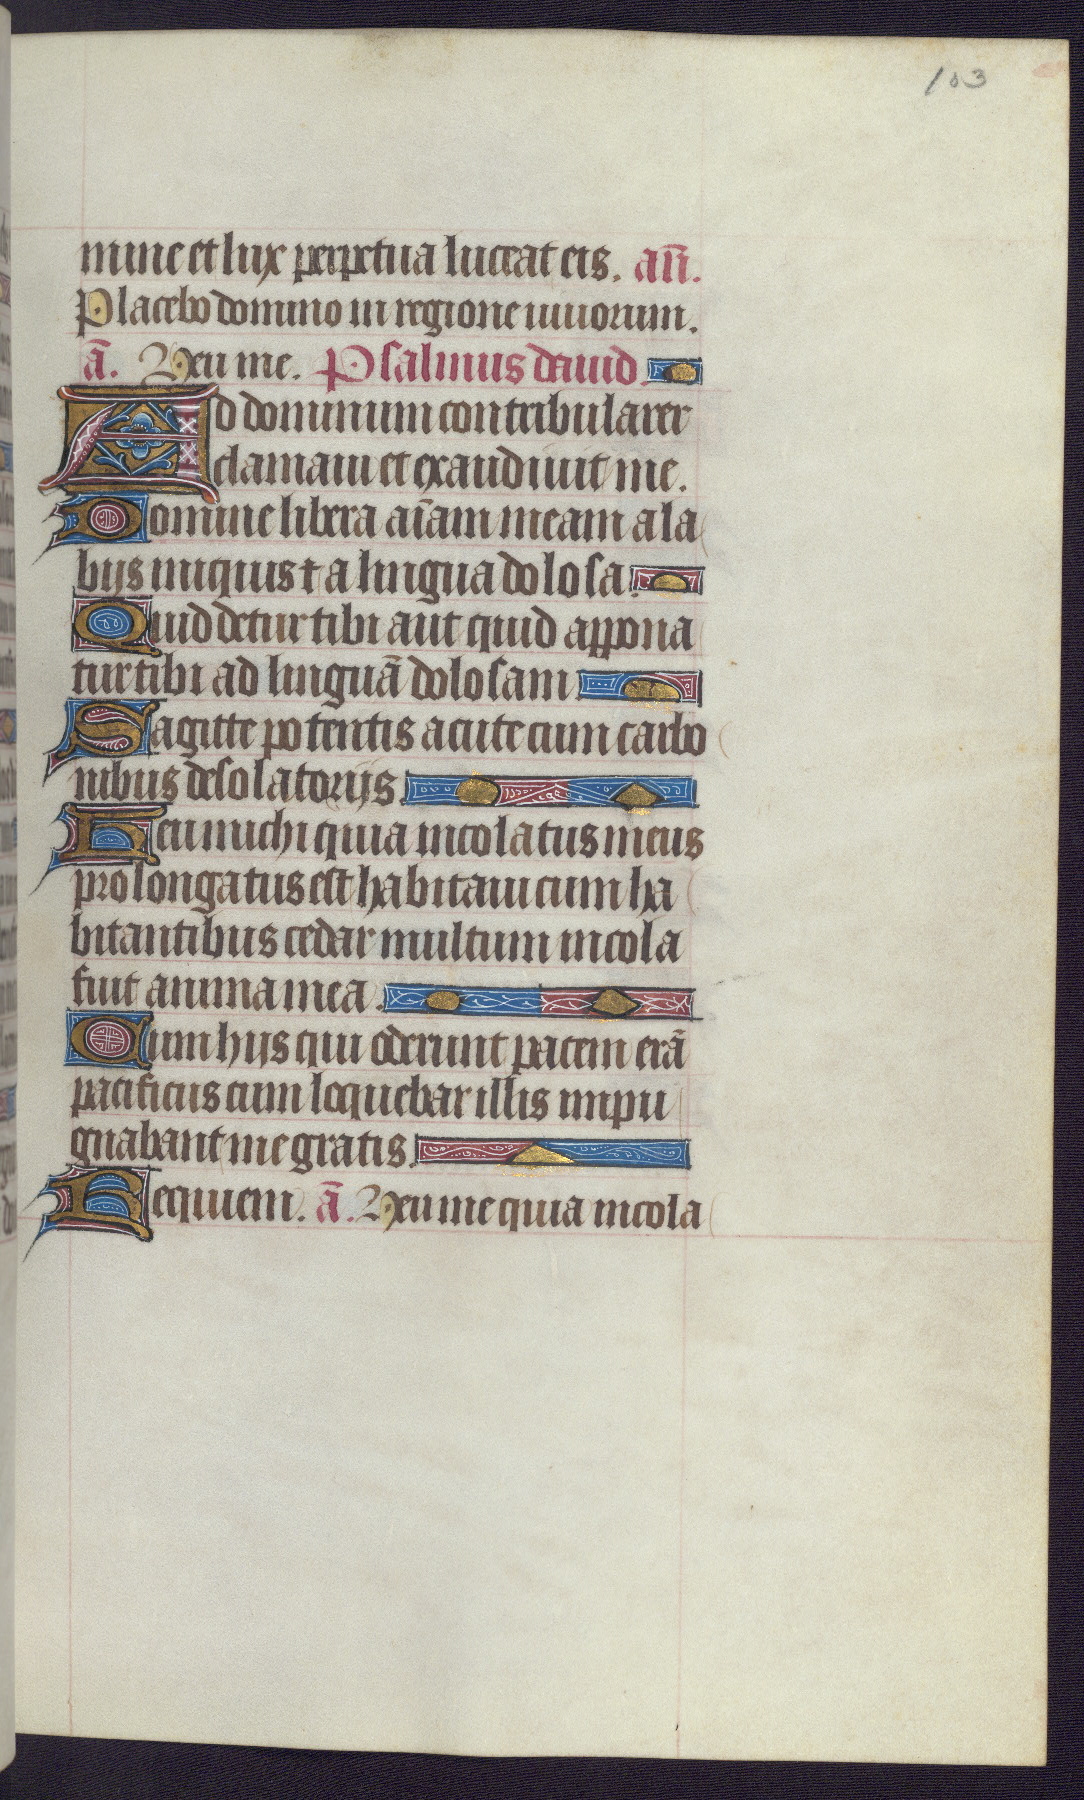 103
mine et lux perpetua luceat eis. añ.
Placebo domino in regione uiuorum.
ā. Heu me. Psalmus dauid
Ad dominum con tribularer
clamaui et exaudiuit me.
Domine libera aīam meam a la
bijs iniquis t a lingua dolosa.
Quid detur tibi aut quid appona
tur tibi ad linguā dolosam
Sagitte potentis acute cum carbo
nibus desolatorijs.
Heu michi quia incolatus meus
prolongatus est habitaui cum ha
bitantibus cedar multum incola
fuit anima mea.
Cum hijs qui oderunt pacem erā
pacificus cum loquebar illis inpu
gnabant me gratis.
Requiem. ā. Heu me quia incola